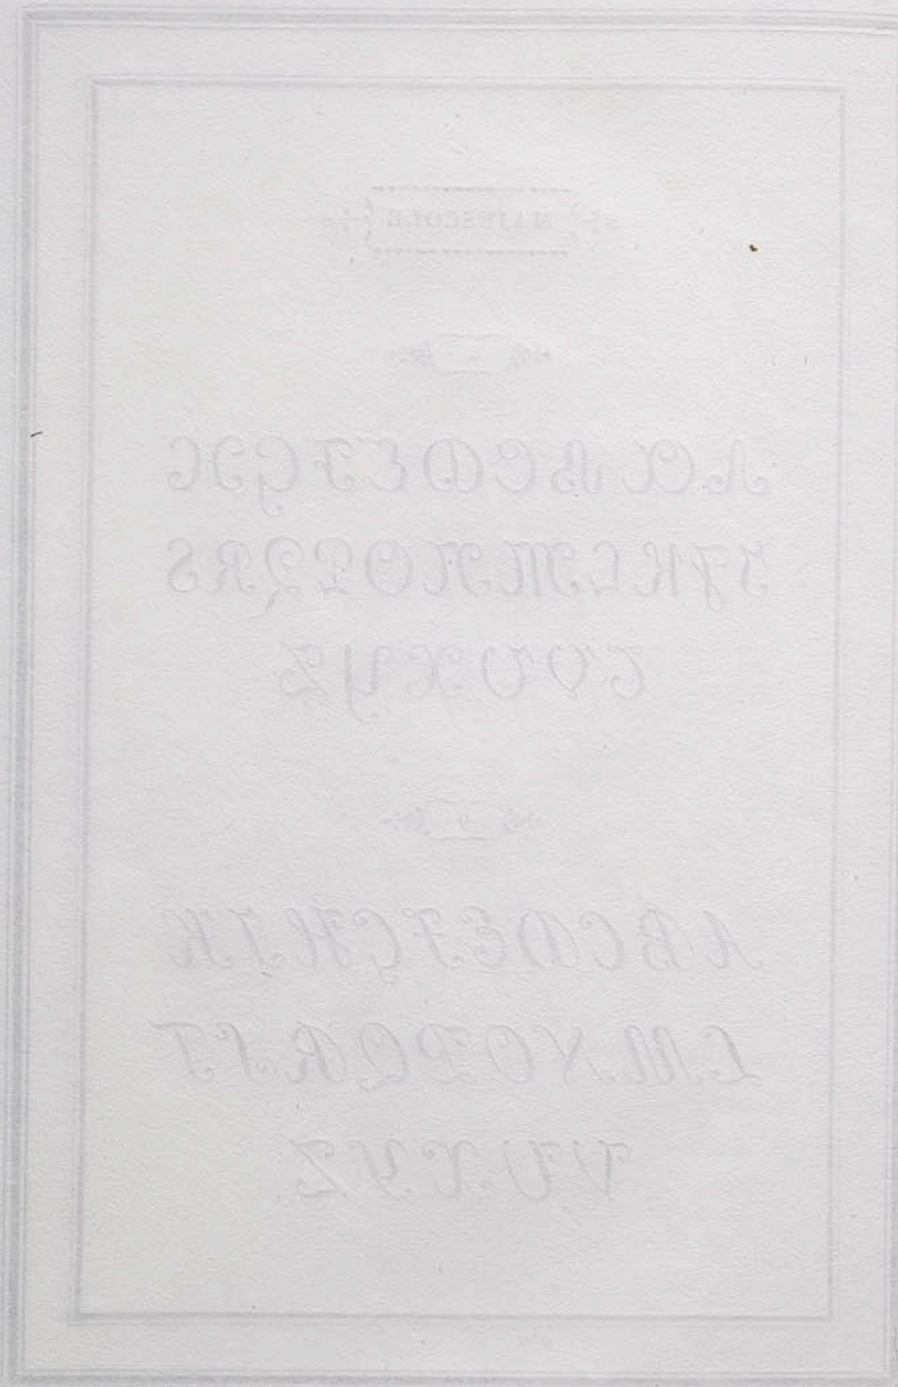 MAJUSCOLE
A A B C D E F G H
I J K L M N O P Q R S
T V U X Y Z
9
A B C D E F G H I K
L M N O P Q R S T
V U X Y Z